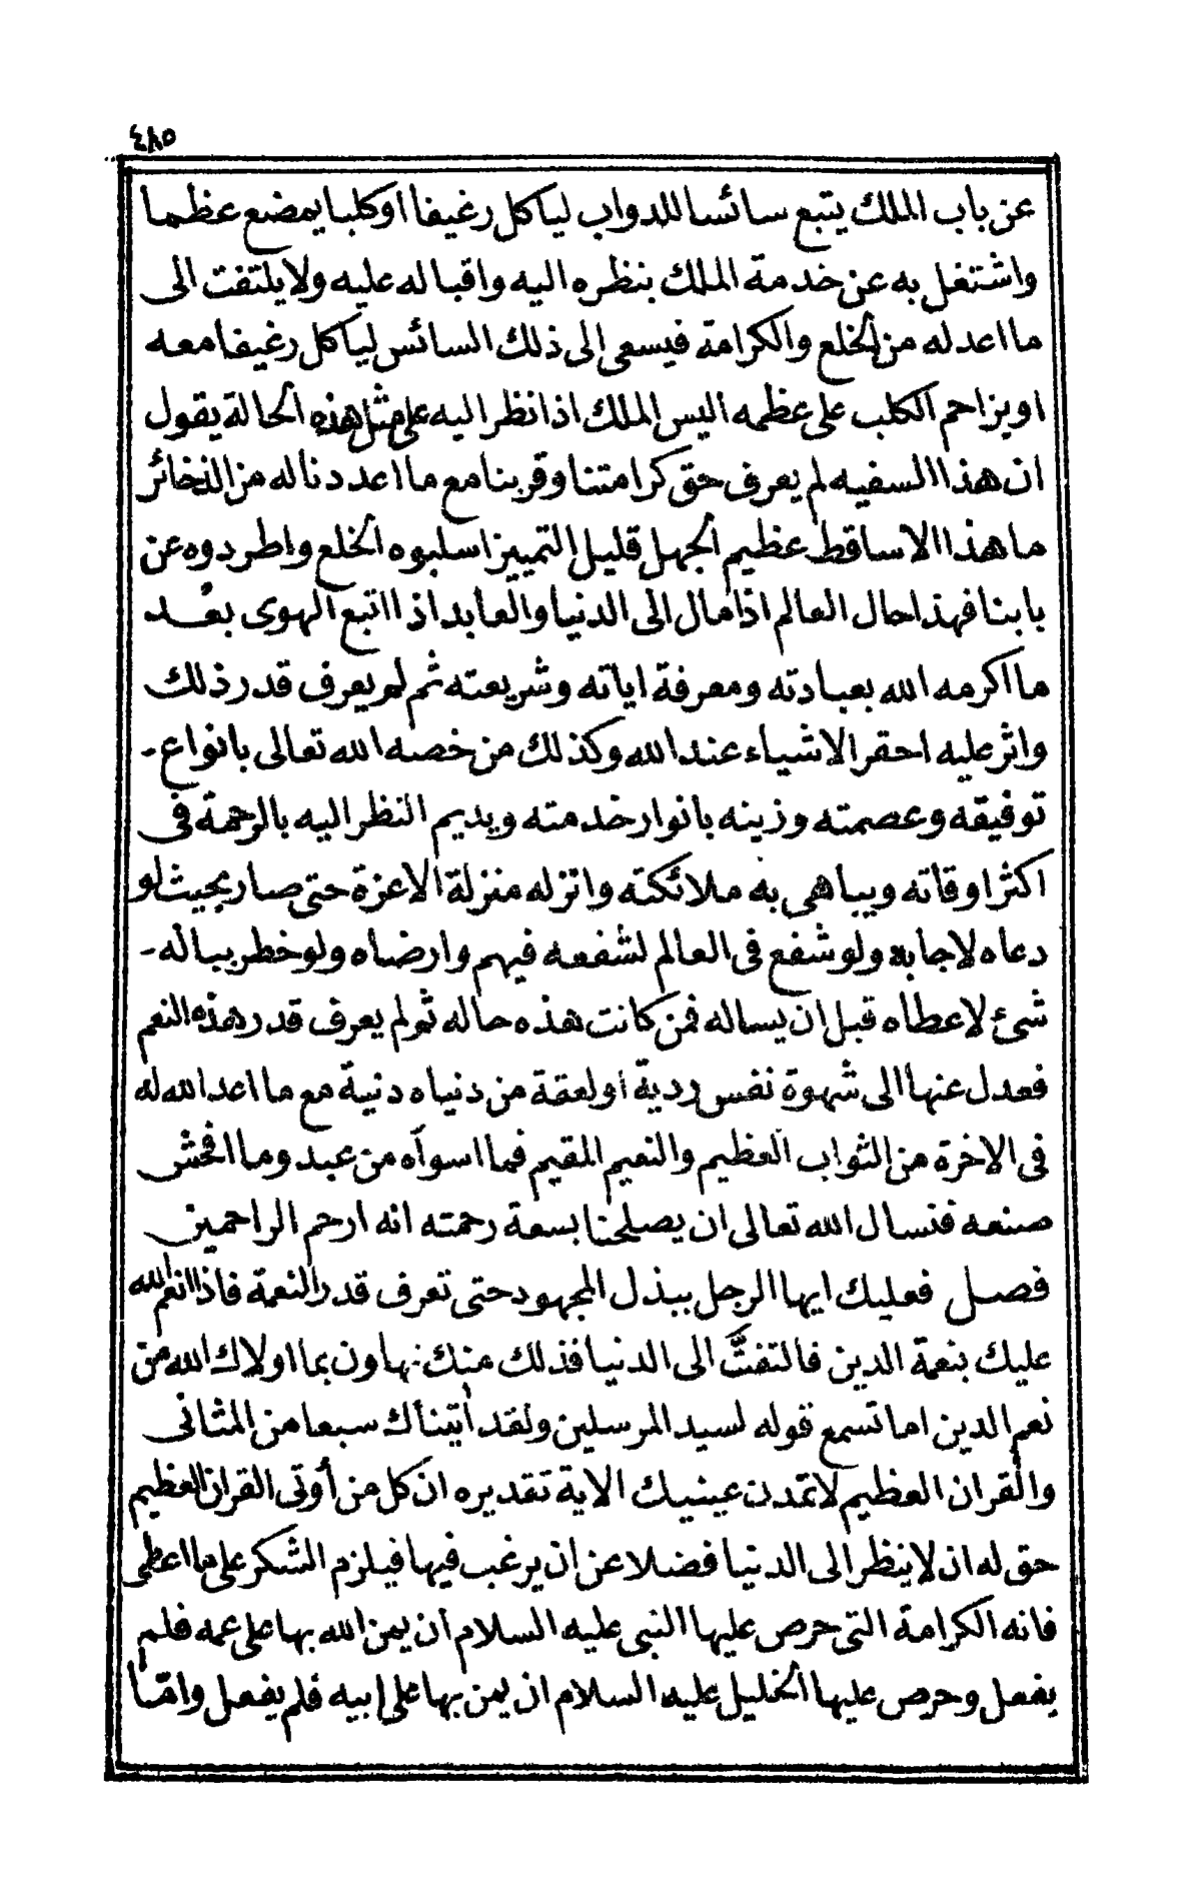 ٤٨٥
عن باب الملك يتبع سائسا للدواب لياكل رغيفا اوكلبا يمضع عظما
واشتغل به عن خدمة الملك بنظره اليه واقباله عليه ولا يلتفت الى
ما اعد له من الخلع والكرامة فيسعى الى ذلك السائس لياكل رغيفا معه
او يزاحم الكلب على عظمه اليس الملك اذا نظر اليه على مثل هذه الحالة يقول
ان هذا السفيه لم يعرف حق كرامتنا وقربنا مع ما اعددنا له من الذخائر
ما هذا الاساقط عظيم الجهل قليل التمييز اسلبوه الخلع واطردوه عن
بابنا فهذا حال العالم اذا مال الى الدنيا والعابد اذا اتبع الهوى بعُد
ما اكرمه الله بعبادته ومعرفة اياته وشريعته ثم لم يعرف قدر ذلك
واثر عليه احقر الاشياء عند الله وكذلك من خصه الله تعالى بانواع -
توفيقه وعصمته وزينه بانوار خدمته ويديم النظر اليه بالرحمة فى
اكثر اوقاته ويباهى به ملائكته وانزله منزلة الاعزة حتى صار بحيث لو
دعاه لاجابه ولو شفع فى العالم لشفعه فيهم وارضاه ولو خطر بباله -
شئ لاعطاه قبل ان يساله فمن كانت هذه حاله ثم لم يعرف قدر هذه النعم
فعدل عنها الى شهوة نفس ردية او لعقة من دنياه دنية مع ما اعد الله له
فى الاخرة من الثواب العظيم والنعيم المقيم فما اسوأه من عبد وما افحش
صنعه فنسال الله تعالى ان يصلحنا بسعة رحمته انه ارحم الراحمين
فصل فعليك ايها الرجل ببذل المجهود حتى تعرف قدر النعمة فاذا انعم الله
عليك بنعمة الدين فالتفتَّ الى الدنيا فذلك منك تهاون بما اولاك الله من
نعم الدين اما تسمع قوله لسيد المرسلين ولقد أتيناك سبعا من المثانى
والقران العظيم لا تمدن عينيك الاية تقديره ان كل من أوتى القران العظيم
حق له ان لا ينظر الى الدنيا فضلا عن ان يرغب فيها فيلزم الشكر على ما اعطى
فانه الكرامة التى حرص عليها النبى عليه السلام أن يمن الله بها على عمه فلم
يفعل وحرص عليها الخليل عليه السلام ان يمن بها على ابيه فلم يفعل وامّا